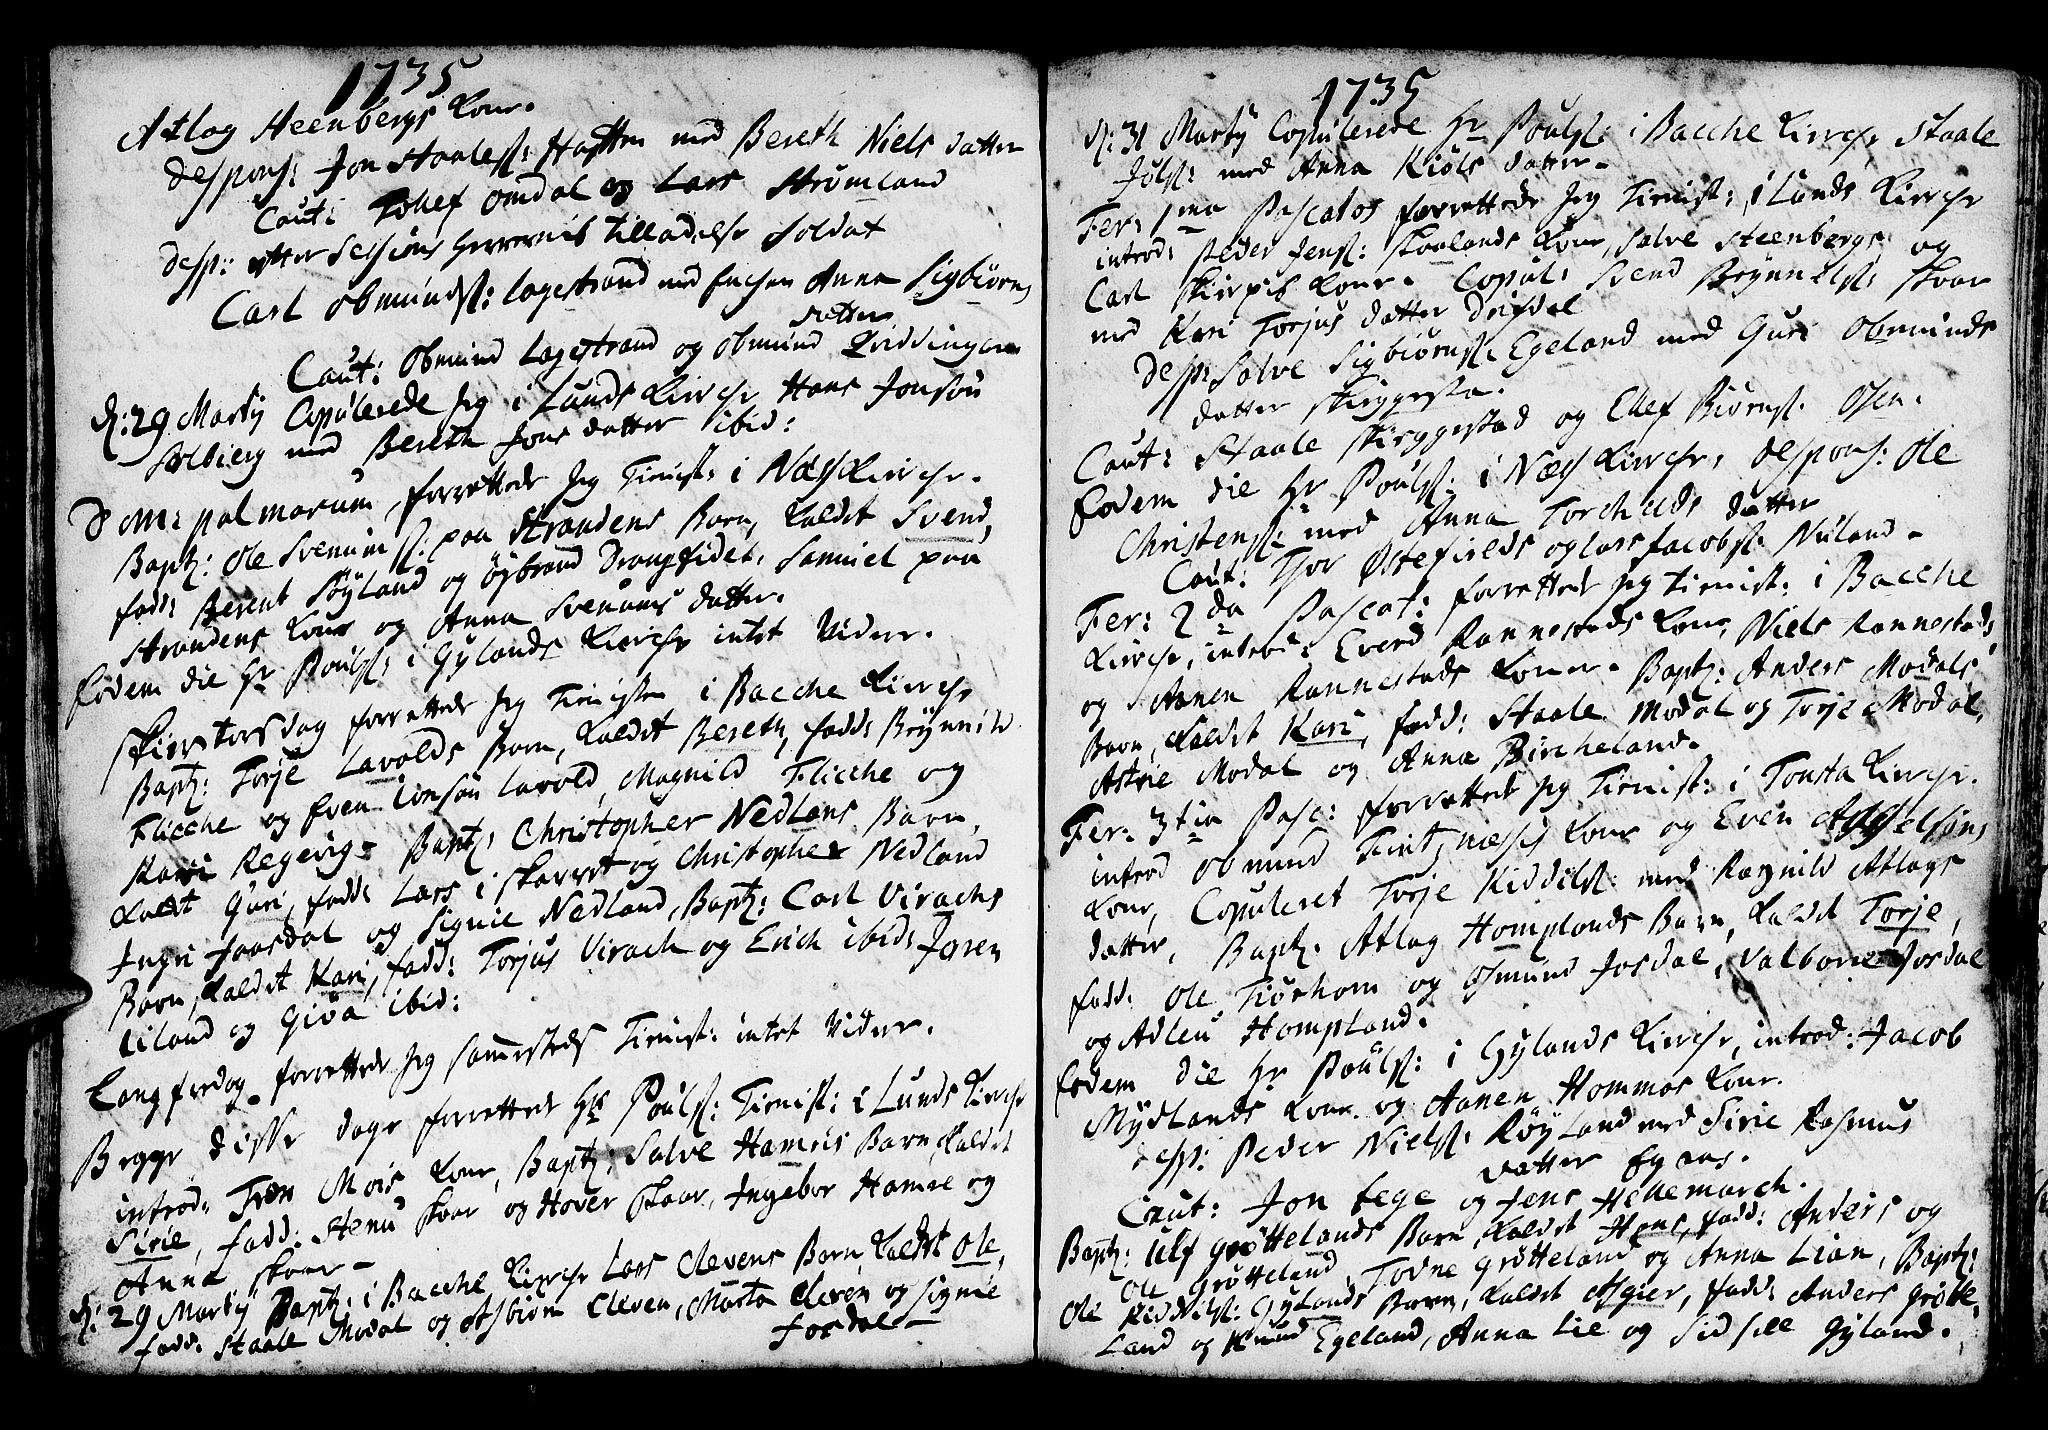 1735
Atlag Steenbergs Kone.
Despons: Jon Staaless: med Bereth Niels datter
Caut: Tollef Omdal og Lars Strømland
Desp: efter Sessions Herrernis tilladelse Soldat
Carl Obmunds: Lagestrand med Enchen Anna Sigbiørns
datter
Caut: Obmund Lagestrand og Obmund Qviddingen
d: 29 Martÿ Copulerede Jeg i Lunds Kirche Hans Jonsøn
Solbierg med Bereth Jons datter ibid:
Dom: palmarum, forrettede Jeg Tienist: i Næss Kirche.
Bapt: Ole Svenums: paa Strandens Barn, Kaldet Svend,
fadd: Berent Røÿland og Øÿbrand Drangsfidet. Samuel paa
Strandens Kone og Anna Svenums datter.
Eodem die Hr Pouls: i Gÿlands Kirche intet Videre.
Skiertorsdag forrettede Jeg Tienisten i Bacche Kirche
Bapt: Torje Lavolds Barn, Kaldet Bereth, fadd: Brÿnnild
Flicche og Even Lavold, Magnild Flicche og
Kari Regevig. Bapt: Christopher Nedlans Barn,
Kaldt Guri, fadd: Lars i Skarret og Christopher Nedland
Ingri Jaasdal og Signie Nedland, Bapt: Carl Virachs
Barn, Kaldet Kari, fadd: Torjus Virach og Erich ibid: Joren
Liland og Giva ibid:
Langfredag forrettede Jeg sammesteds Tienist: intet Videre.
Begge disse dage forrettet Hr Pouls: Tienist: i Lunds Kirche
introd: Tron Mois Kone, Bapt: Salve Hamris Barn, Kaldet
Sirie, fadd: Stenu Skaar og Hover Skaar, Ingebor Hamre og
Anna Skaar.
d: 29 Martÿ Bapt: i Bacche Kirche Lars Clevens Barn, Kaldet Ole,
fadd: Staale Modal og Asbiørn Cleven, Marta Cleven og Signie
Josdal
1735
d: 31 Martÿ Copulerede Hr Pouls: i Bacche Kirche Staale
Jøls: med Anna Kiøls datter.
Fer: 1ma Pascatos forrettede Jeg Tienist: i Lunds Kirche
introd: Peder Jens: Skaalands Kone, Salve Steenbergs og
Carl Skirpis Kone. Copul: Svend Brÿnnels: Skaar
med Kari Torjus datter Drifdal
Desp: Salve Sigbiørns: Egeland med Guri Obmunds
datter Skiggestad.
Caut: Staale Skiryggestad og Ellef Biørns: Osen.
Eodem die Hr Pouls: i Næss Kirche, Despons: Ole
Christens: med Anna Torchelds datter
Caut: Thor Østefields og Lars Jacobs: Nuland.
Fer: 2da Pascat: forrettede Jeg tienist: i Bacche
Kirche, introd: Everd Rannestads Kone, Niels Rannestads
og Aanen Rannestads Koner. Bapt: Anders Modals
Barn, Kaldet Kari, fadd: Staale Modal og Torje Modal,
Astrie Modal og Anna Bircheland.
Fer: 3tia Pasc: forrettet Jeg Tienist: i Tonsta Kirche.
introd Obmund Kone og Even
Kone, Copuleret Torje Kiddils: med Ragnild Atlags
datter, Bapt: Atlag Homplands Barn, Kaldet Torje,
fadd: Ole Tiørhom og Osmund Josdal, Valborie Josdal
og Adleu Hompland.
Eodem die Hr Pouls: i Gÿlands Kirche, introd: Jacob
Mÿdlands Kone og Aanen Hommas Kone.
Desp: Peder Niels: Røÿland med Sirie Rasmus
datter Egens.
Caut: Jon Eege og Jens Hellemarch.
Bapt: Ulf Grøttelands Barn, Kaldet Hans, fadd: Anders og
Ole Grøtteland, Torne Grøtteland og Anna Lian, Bapt:
Ole Kiddils: Gÿlands Barn, Kaldet Asgier, fadd: Anders Grøtte
Land og Knud Egeland, Anna Lie og Sidsele Gÿland.